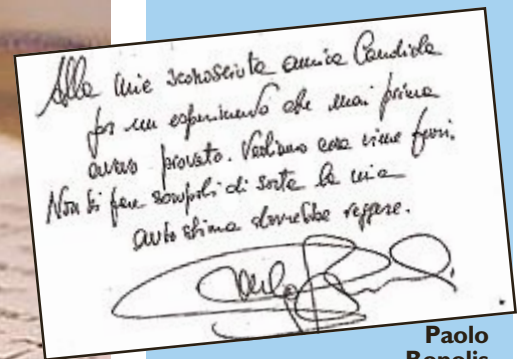 Alla mia sconosciuta amica Candida
per un esperimento che mai prima
avevo provato. Vediamo cosa viene fuori.
Non si faccia scrupoli di sorta la mia
autostima dovrebbe reggere.
Paolo
Bonolis